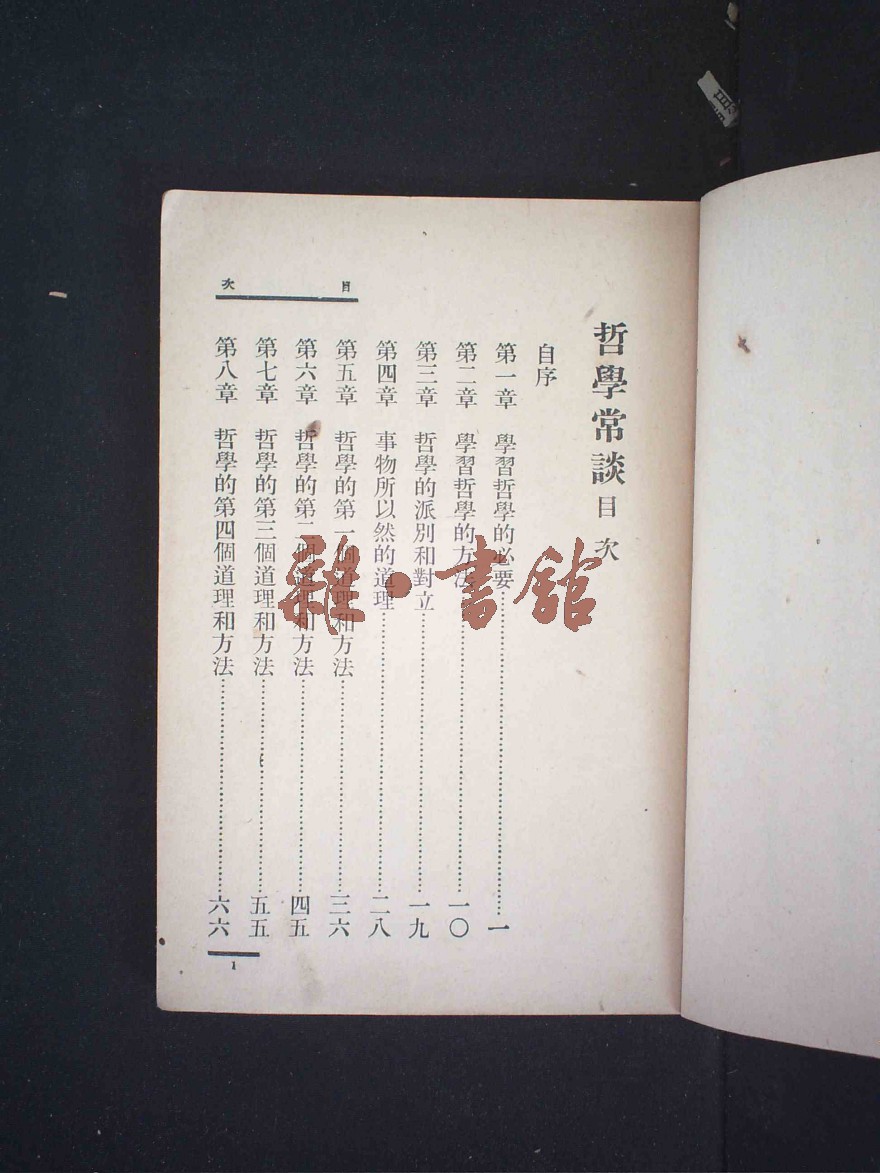 哲學常談目次
自序
第一章 學習哲學的必要…………一
第二章 學習哲學的方法…………一〇
第三章 哲學的派別和對立…………一九
第四章 事物所以然的道理…………二八
第五章 哲學的第一個道理和方法…………三六
第六章 哲學的第二個道理和方法…………四五
第七章 哲學的第三個道理和方法…………五五
第八章 哲學的第四個道理和方法…………六六
目次
1
雜·書館